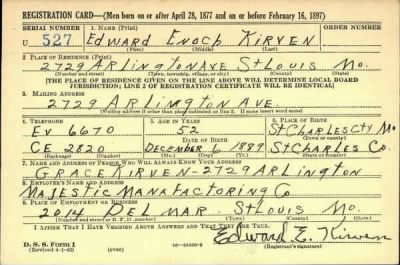 REGISTRATION CARD—(Men born on or after April 28, 1877 and on or before February 16, 1897)
SERIAL NUMBER 1. NAME (Print) ORDER NUMBER
U 527 EDWARD ENOCH KIRVEN
(First) (Middle) (Last)
2. PLACE OF RESIDENCE (Print)
2729 ARLINGTON AVE ST LOUIS MO.
(Number and street) (Town, township, village, or city) (County) (State)
[THE PLACE OF RESIDENCE GIVEN ON THE LINE ABOVE WILL DETERMINE LOCAL BOARD
JURISDICTION; LINE 2 OF REGISTRATION CERTIFICATE WILL BE IDENTICAL]
3. MAILING ADDRESS
2729 ARLINGTON AVE.
[Mailing address if other than place indicated on line 2. If same insert word same]
4. TELEPHONE 5. AGE IN YEARS 6. PLACE OF BIRTH
EV 6670 52 ST CHARLES CTY MO
DATE OF BIRTH (Town or county)
CE 2820 DECEMBER 6 1889 ST CHARLES CO.
(Exchange) (Number) (Mo.) (Day) (Yr.) (State or country)
7. NAME AND ADDRESS OF PERSON WHO WILL ALWAYS KNOW YOUR ADDRESS
GRACE KIRVEN - 2729 ARLINGTON
8. EMPLOYER'S NAME AND ADDRESS
MAJESTIC MANUFACTORING CO
9. PLACE OF EMPLOYMENT OR BUSINESS
2014 DELMAR ST LOUIS MO.
(Number and street or R. F. D. number) (Town) (County) (State)
I AFFIRM THAT I HAVE VERIFIED ABOVE ANSWERS AND THAT THEY ARE TRUE.
Edward E. Kirven
D. S. S. Form 1 (Registrant's signature)
(over)